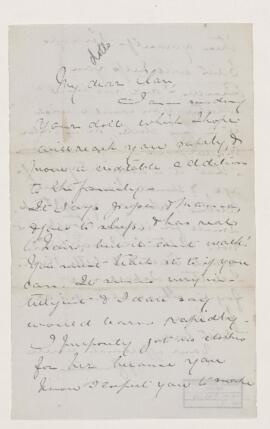 dolls
My dear Clan
I am sending
your doll which I hope
will reach you safely, &
prove a creditable addition
to the family.
It says papa & mama,
& goes to sleep, & has real
hair, but it can't walk.
You must teach it to if you
can. It seems very in-
telligent & I dare say
would learn rapidly.
I purposely got no clothes
for her because you
know I expect you to make